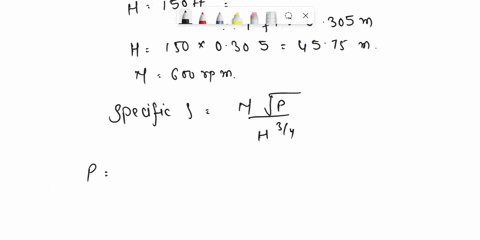 H = 150 ft =
0.305 m
H = 150 × 0.305 = 45.75 m.
N = 600 rpm.
Specific S = N √P / H^3/4
P =